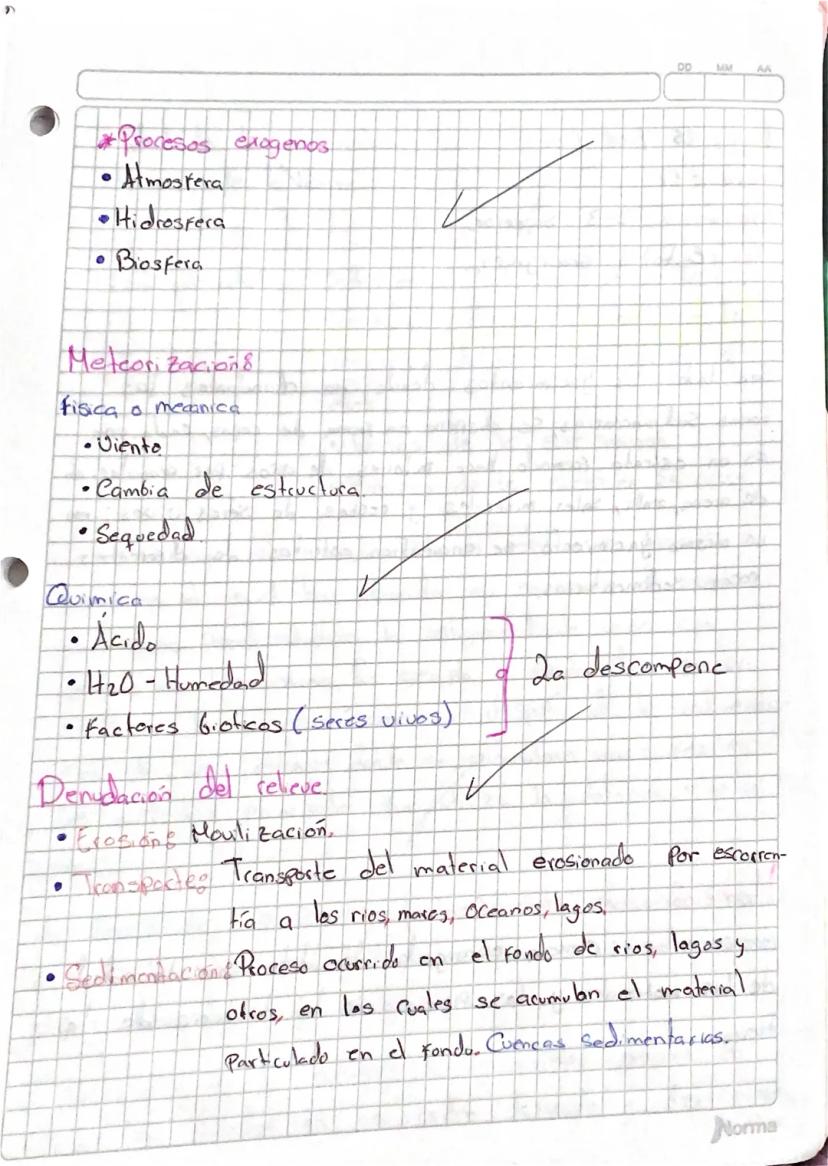 DD MM AA
*Procesos exogenos
• Atmosfera
• Hidrosfera
• Biosfera
Meteorización:
fisica o mecanica
• Viento
• Cambia de estructura.
• Sequedad.
Quimica
• Ácido
• H2O - Humedad
• Factores bioticos (seres vivos)
La descompone
Denudación del relieve.
• Erosión: Movilización.
• Transporte: Transporte del material erosionado por escorren-
tía a los rios, mares, oceanos, lagos.
• Sedimentación: Proceso ocurrido en el fondo de rios, lagos y
otros, en los cuales se acumulan el material
particulado en el fondo. Cuencas sedimentarias.
Norma